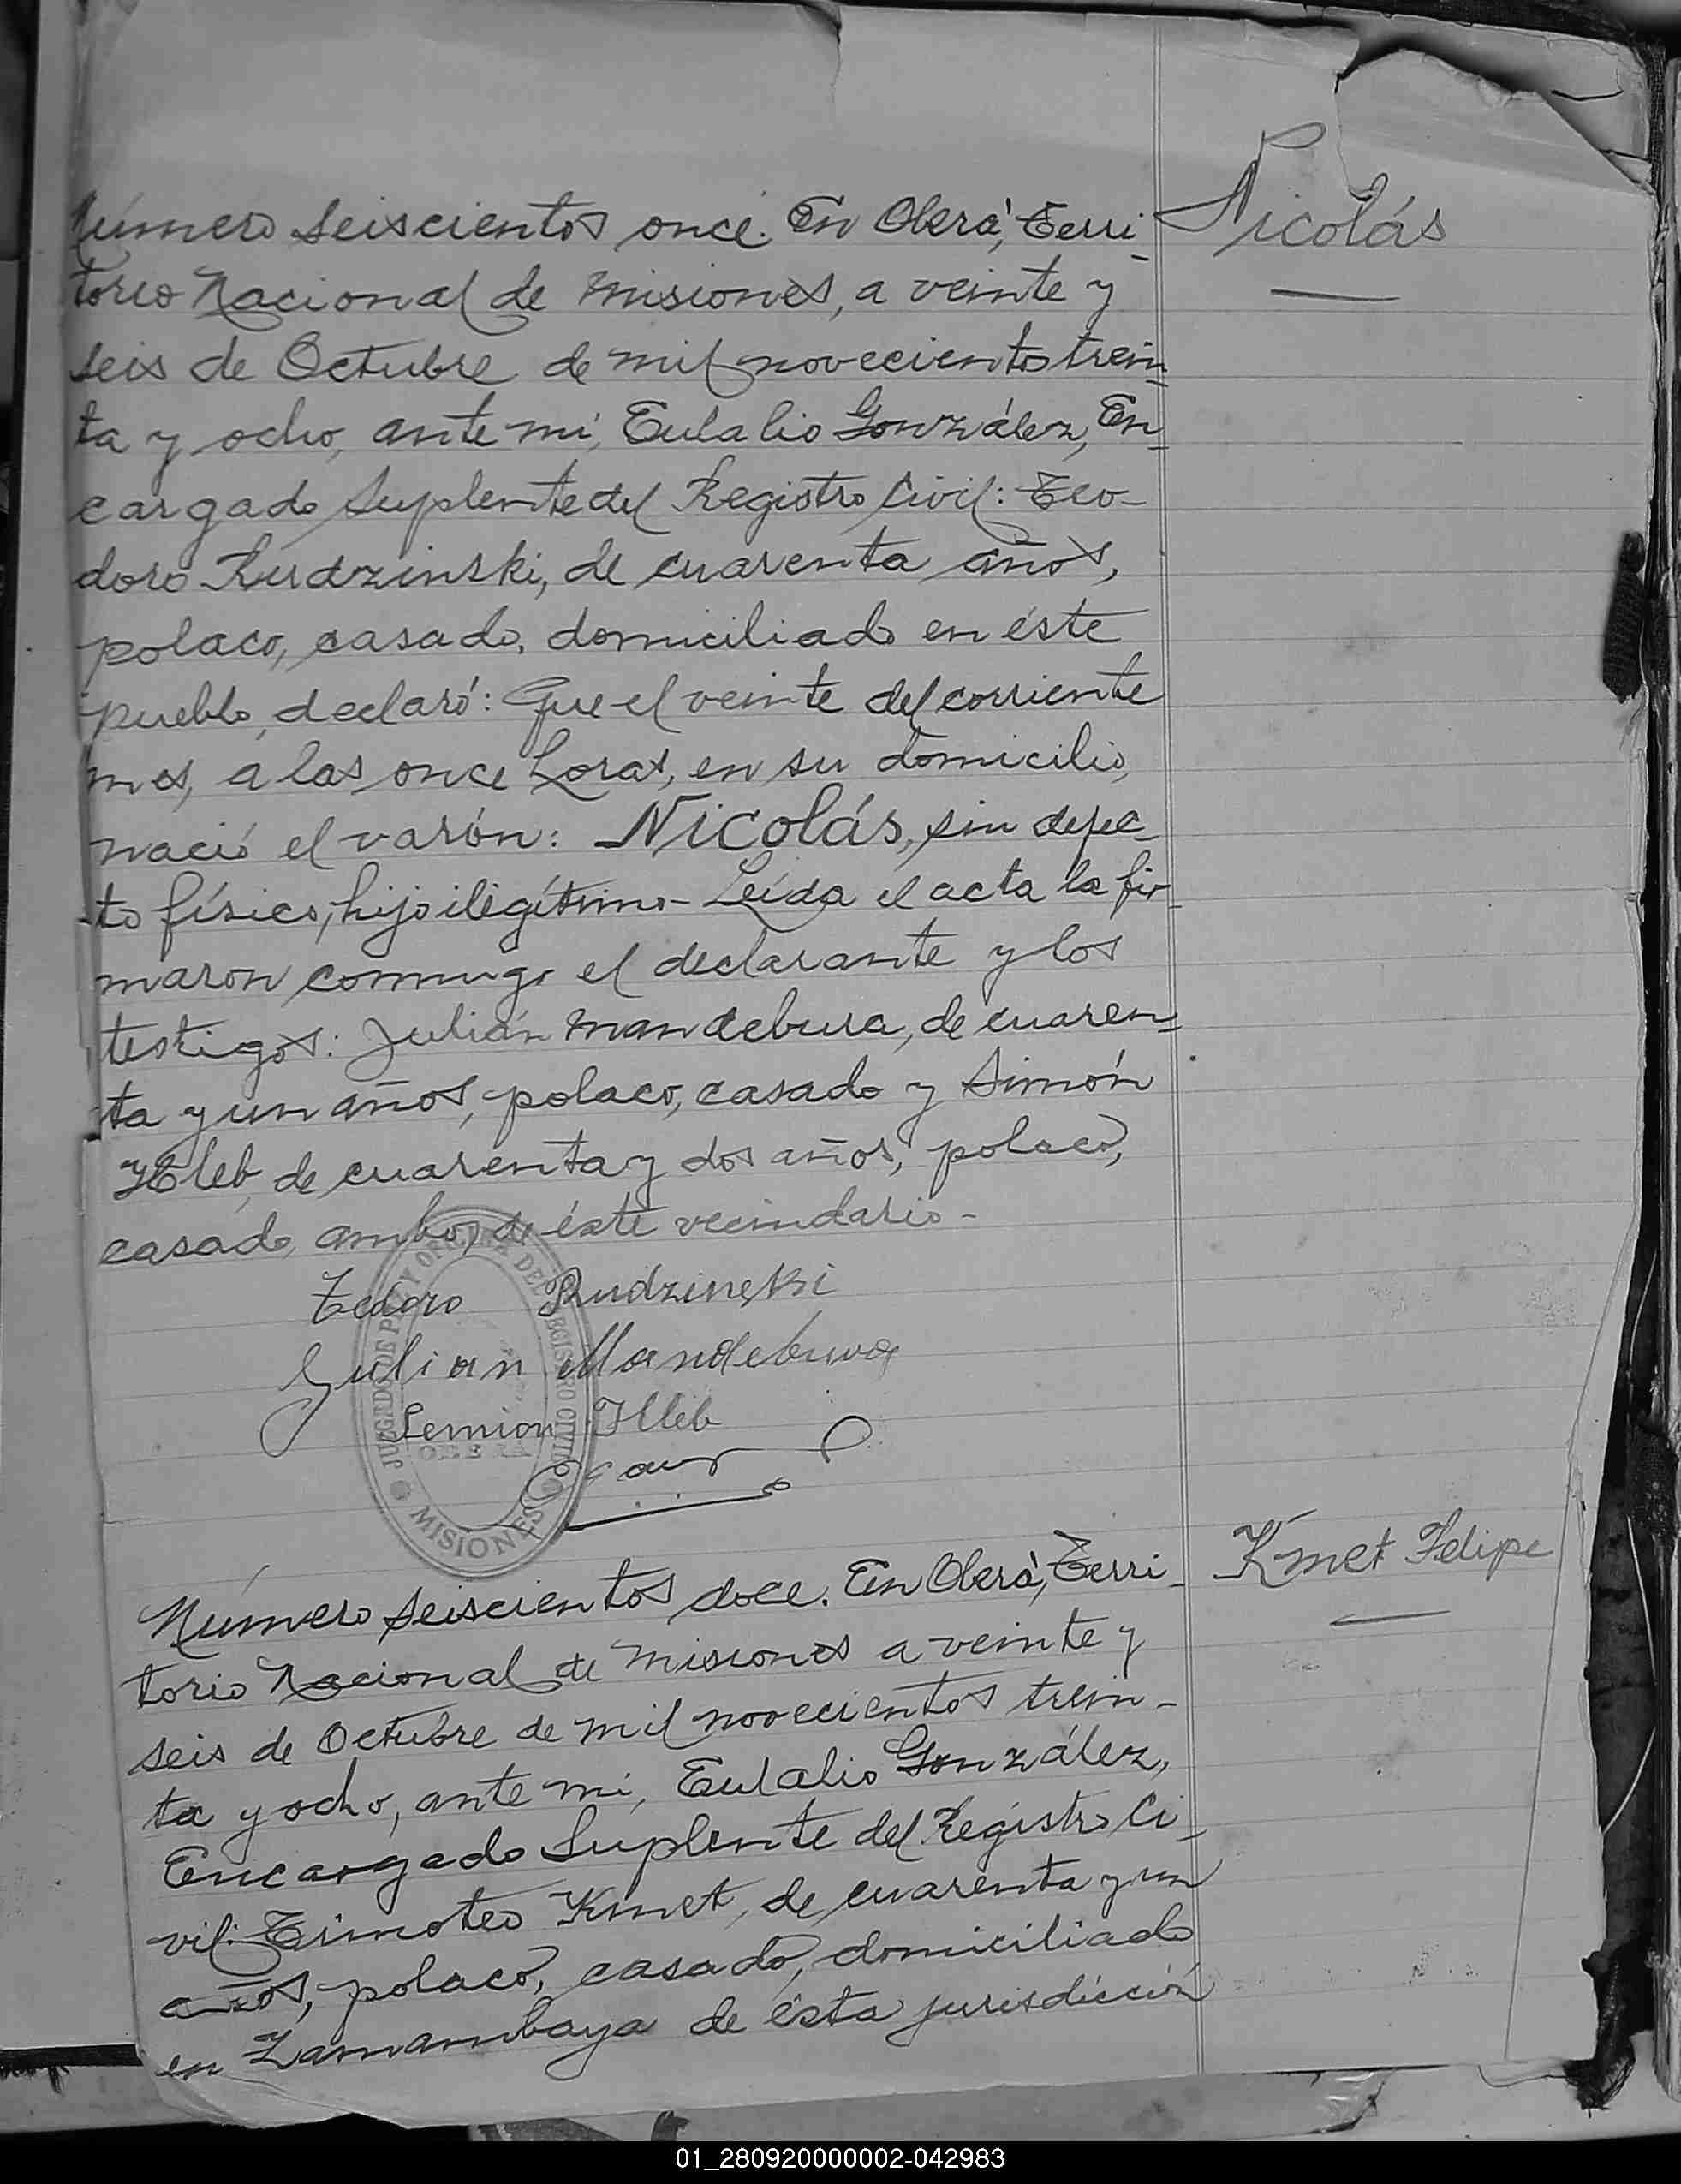 Número seiscientos once. En Oberá, Terri-
torio Nacional de Misiones, a veinte y
seis de Octubre de mil novecientos trein-
ta y ocho, ante mí, Eulalio González, En-
cargado Suplente del Registro Civil: Teo-
doro Rudzinski, de cuarenta años,
polaco, casado, domiciliado en éste
pueblo, declaró: Que el veinte del corriente
mes, a las once horas, en su domicilio,
nació el varón: Nicolás, sin defec-
to físico, hijo ilegítimo- Leída el acta la fir-
maron conmigo el declarante y los
testigos: Julián Mandebura, de cuaren-
ta y un años, polaco, casado y Simón
Hleb, de cuarenta y dos años, polaco,
casado, ambos de éste vecindario-
Teodoro Rudzinski
Julian Mandebura
Semion Hleb
JUZGADO DE PAZ Y OFICINA DEL REGISTRO CIVIL
OBERA
MISIONES
Nicolás
Número seiscientos doce. En Oberá, Terri-
torio Nacional de Misiones a veinte y
seis de Octubre de mil novecientos trein-
ta y ocho, ante mí, Eulalio González,
Encargado Suplente del Registro Ci-
vil: Timoteo Kmet, de cuarenta y un
años, polaco, casado, domiciliado
en Zamambaya de ésta jurisdicción
Kmet Felipe
01_280920000002-042983